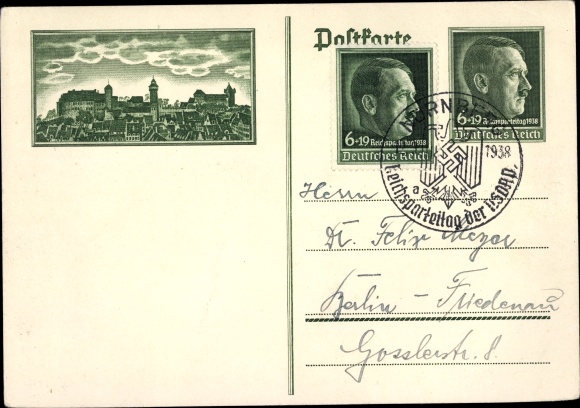 Postkarte
6+19 Reichsparteitag 1938
Deutsches Reich
6+19 Reichsparteitag 1938
Deutsches Reich
NÜRNBERG
1938
a
Reichsparteitag der NSDAP.
Herrn
Dr. Felix Meyer
Berlin - Friedenau
Gosslerstr. 8.